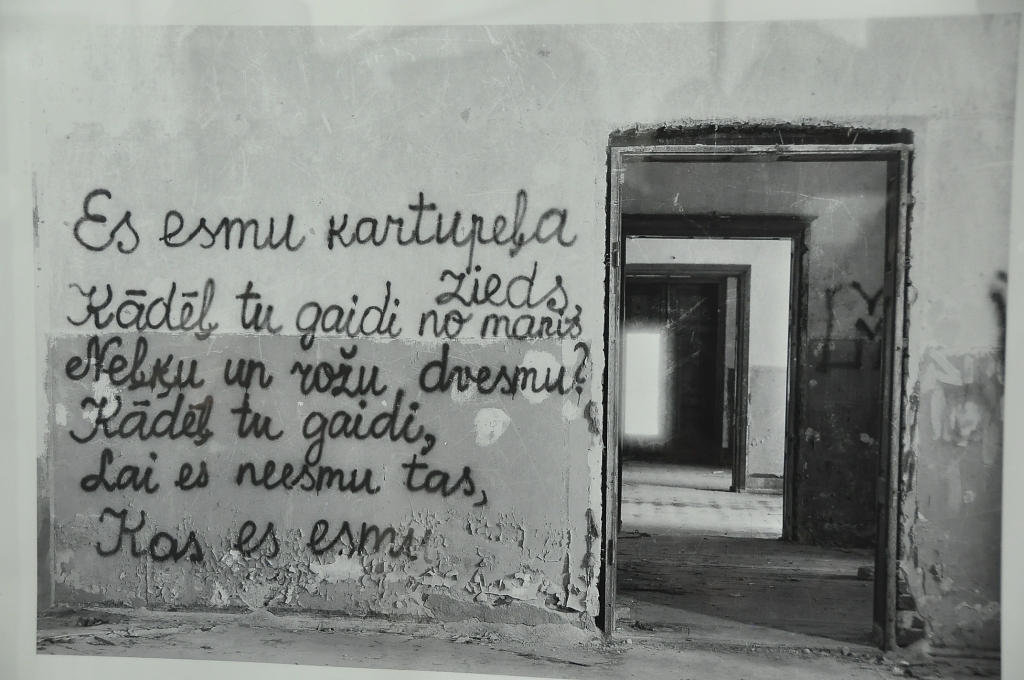 Es esmu kartupeļa
zieds,
Kādēļ tu gaidi no manis
Neļķu un rožu dvesmu?
Kādēļ tu gaidi,
Lai es neesmu tas,
Kas es esmu